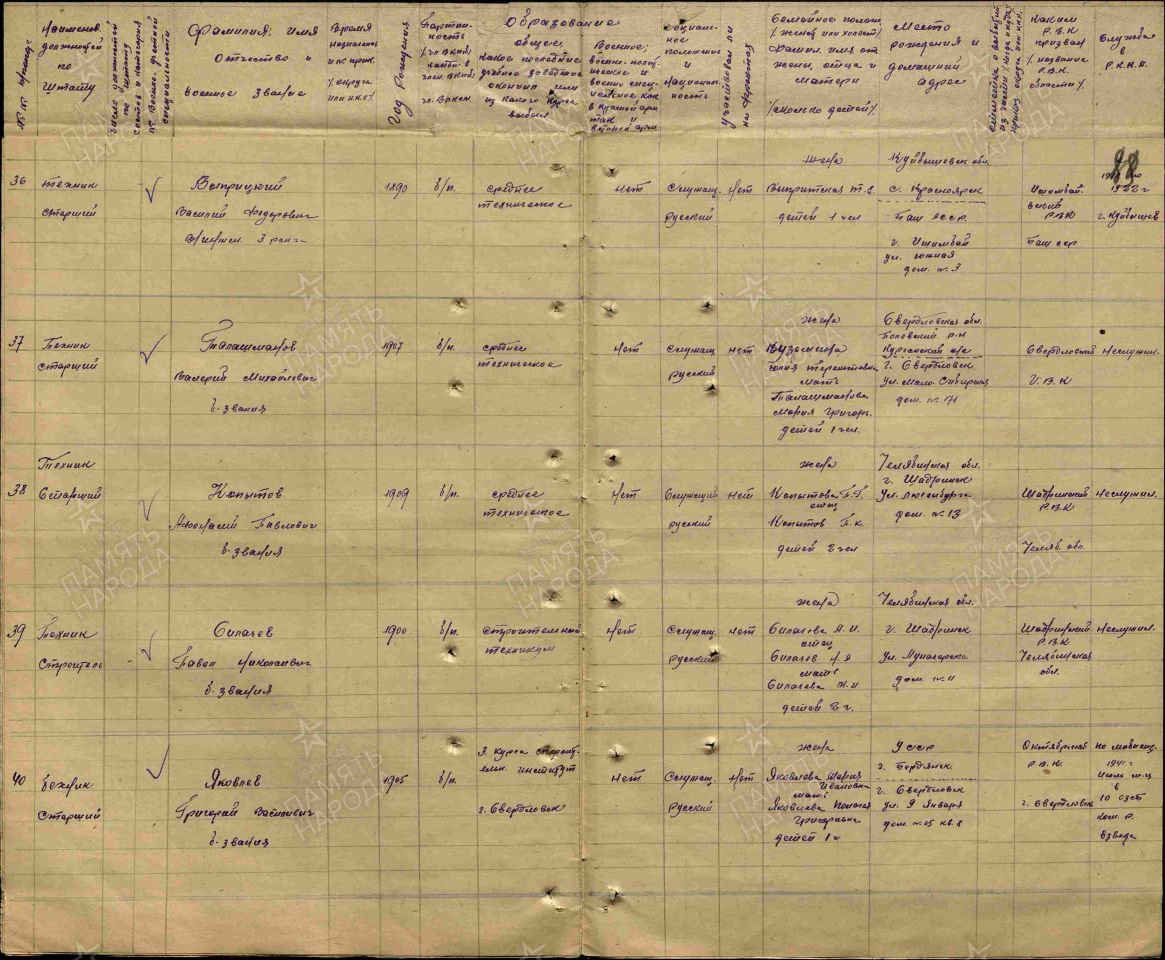 № по поряд.
Наименов. должностей по Штату
Число должностей
Фамилия, имя
отчество и
военное звание
Время назначен.
и № прик.
/округа
или нко/
Год Рождения
Партий-
ность
Образование
общее,
какое последнее
учебное заведение
окончил или
из какого курса
выбыл
Военное,
Социаль-
ное
положение
и
национал-
ность
Участвовал ли
на фронтах
Семейное полож.
/женат или холост/
Фамил. имя от.
жены, отца и
матери
/сколько детей/
Место
рождения и
домашний
адрес
Каким
Р.В.К
призван
/название
Р.В.К.
области/
Служба
в
Р.К.К.А.
88
36
техник
старший
Выприцкий
Василий Федорович
В/инжен. 3 ранга
1890
б/п.
среднее
техническое
нет
Служащ.
русский
нет
жена
Выприцкая т.в.
детей 1 чел
Куйбышевск. обл.
с. Красноярск
Баш АССР.
г. Ишимбай
ул. Южная
дом. № 3
Ишимбай-
ский
Р.В.К
Баш сср
г. Куйбышев
37
Техник
старший
Талашманов
Валерий Михайлович
б. звания
1907
б/п.
среднее
техническое
нет
Служащ
русский
нет
жена
Кузьмина
Юлия Терентьевна
мать
Талашманова
Мария Григорь.
детей 1 чел.
Свердловская обл.
Полевский р-н
Курганский с/с
г. Свердловск
ул. Мало-Сибирская
дом. № 171
Свердловский
Г.В.К
Неслужил.
38
Техник
Старший
Копытов
Афонасий Павлович
б. звания
1909
б/п.
среднее
техническое
Нет
Служащий
русский
нет
жена
Копытова П.Г.
отец
Копытов П.К.
детей 2 чел
Челябинская обл.
г. Шадринск
ул. Люксембурга
дом. № 13
Шадринский
Р.В.К
Челяб. обл.
неслужил.
39
Техник
Строитель
Силачев
Павел Николаевич
б. звания
1900
б/п.
строительный
техникум
Нет
Служащ.
русский
нет
жена
Силачева А.И.
отец
Силачев Н.Я
мать
Силачева
детей 2 ч.
Челябинская обл.
г. Шадринск
ул. Луначарска
дом. № 11
Шадринский
Р.В.К
Челябинская
обл.
Неслужил.
40
Техник
Старший
Яковлев
Григорий Василиевич
б. звания
1905
б/п.
3. Курса строит-
ельн. институт
г. Свердловск
нет
Служащ.
русский
нет
жена
Яковлева Мария
Ивановна
мать
Яковлева Полагея
Григорьевна
детей 1 ч
УССР
г. Бердянск
г. Свердловск
ул. 9 Января
дом № 15 кв. 8
Октябрьский
Р.В.К.
г. Свердловск
по мобилиз.
1941 г.
Июль м-ц
в
10 озсп
ком. р.
взвода
ПАМЯТЬ
НАРОДА